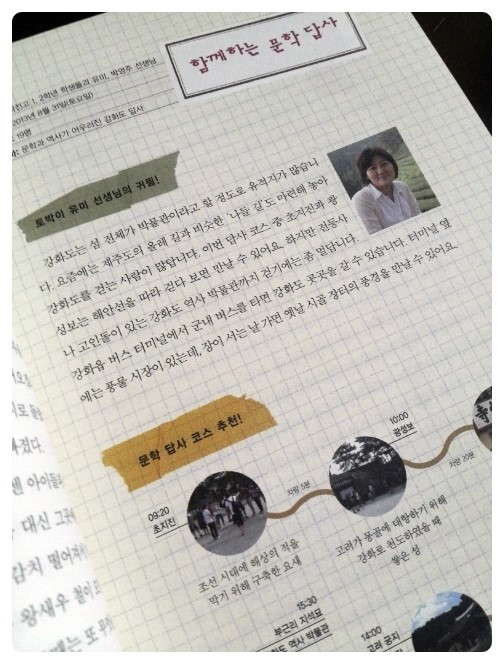 함께하는 문학 답사
1, 2학년 학생들과 유미, 박영주 선생님
2013년 8월 31일(토요일)
19명
문학과 역사가 어우러진 강화도 답사
토박이 유미 선생님의 귀띔!
강화도는 섬 전체가 박물관이라고 할 정도로 유적지가 많습니
다. 요즘에는 제주도의 올레 길과 비슷한 '나들 길'도 마련해 놓아
강화도를 걷는 사람이 많답니다. 이번 답사 코스 중 초지진과 광
성보는 해안선을 따라 걷다 보면 만날 수 있어요. 하지만 전등사
나 고인돌이 있는 강화도 역사 박물관까지 걷기에는 좀 멀답니다.
강화읍 버스 터미널에서 군내 버스를 타면 강화도 곳곳을 갈 수 있습니다. 터미널 옆
에는 풍물 시장이 있는데, 장이 서는 날 가면 옛날 시골 장터의 풍경을 만날 수 있어요.
문학 답사 코스 추천!
09:20
초지진
조선 시대에 해상의 적을
막기 위해 구축한 요새
차량 5분
10:00
광성보
고려가 몽골에 대항하기 위해
강화로 천도하였을 때
쌓은 성
차량 20분
15:30
부근리 지석묘
강화도 역사 박물관
14:00
고려 궁지
대신
감치 떨어져
왕새우